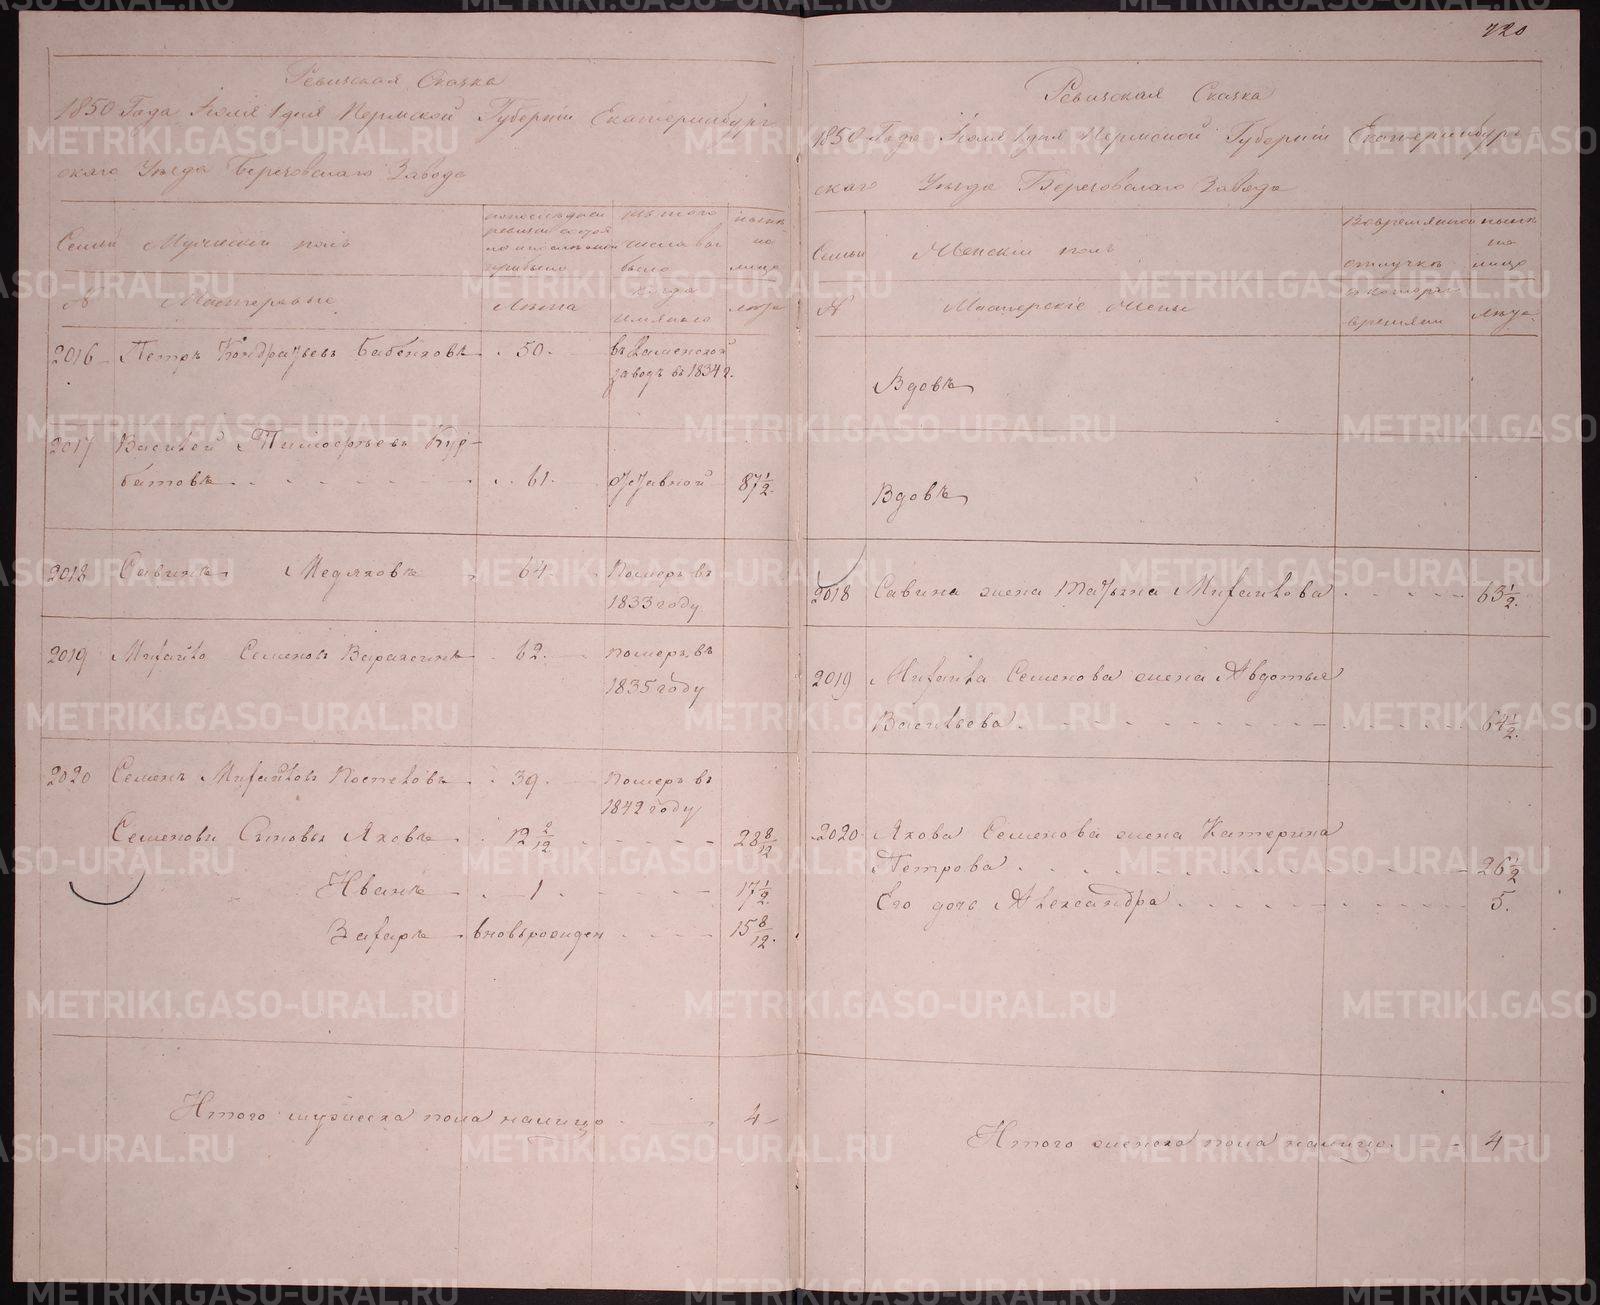 720
Ревизская Сказка
1850 Года Июля 1 дня Пермской Губернiи Екатеринбург
скаго Уезда Березовскаго Завода
Семьи Мужескiй полъ
изъ того числа выбыло
ныне на лицо
№ Мастеровые
Лета
когда именно
лета
2016 Петръ Кондратьевъ Бабенковъ 50. въ Каменской
заводъ въ 1834 г.
2017 Василей Тимофеевъ Кур-
батовъ 61. отставной 87 1/2.
2018 Савинъ Медяковъ 64 Померъ въ
1833 году
2019 Михайло Семеновъ Вараксинъ 62. померъ въ
1835 году
2020 Семенъ Михайловъ Поспеловъ 39. померъ въ
1842 году
Семеновы Сыновья Яковъ 12 2/12 28 8/12
Иванъ 1. 17 1/2.
Захаръ вновьрожден 15 8/12.
Итого мужеска пола налицо 4
Ревизская Сказка
1850 Года Июля 1 дня Пермской Губернiи Екатеринбург
скаго Уезда Березовскаго Завода
Семьи Женскiй полъ
Во временной отлучке
ныне на лицо
№ Мастерскiе Жены
лета.
Вдовъ
Вдовъ
2018 Савина жена Татьяна Михайлова 63 1/2.
2019 Михайла Семенова жена Авдотья
Васильева 64 1/2.
2020 Якова Семенова жена Катерина
Петрова 26 1/2
Его дочь Александра 5.
Итого женска пола налицо. 4
METRIKI.GASO-URAL.RU